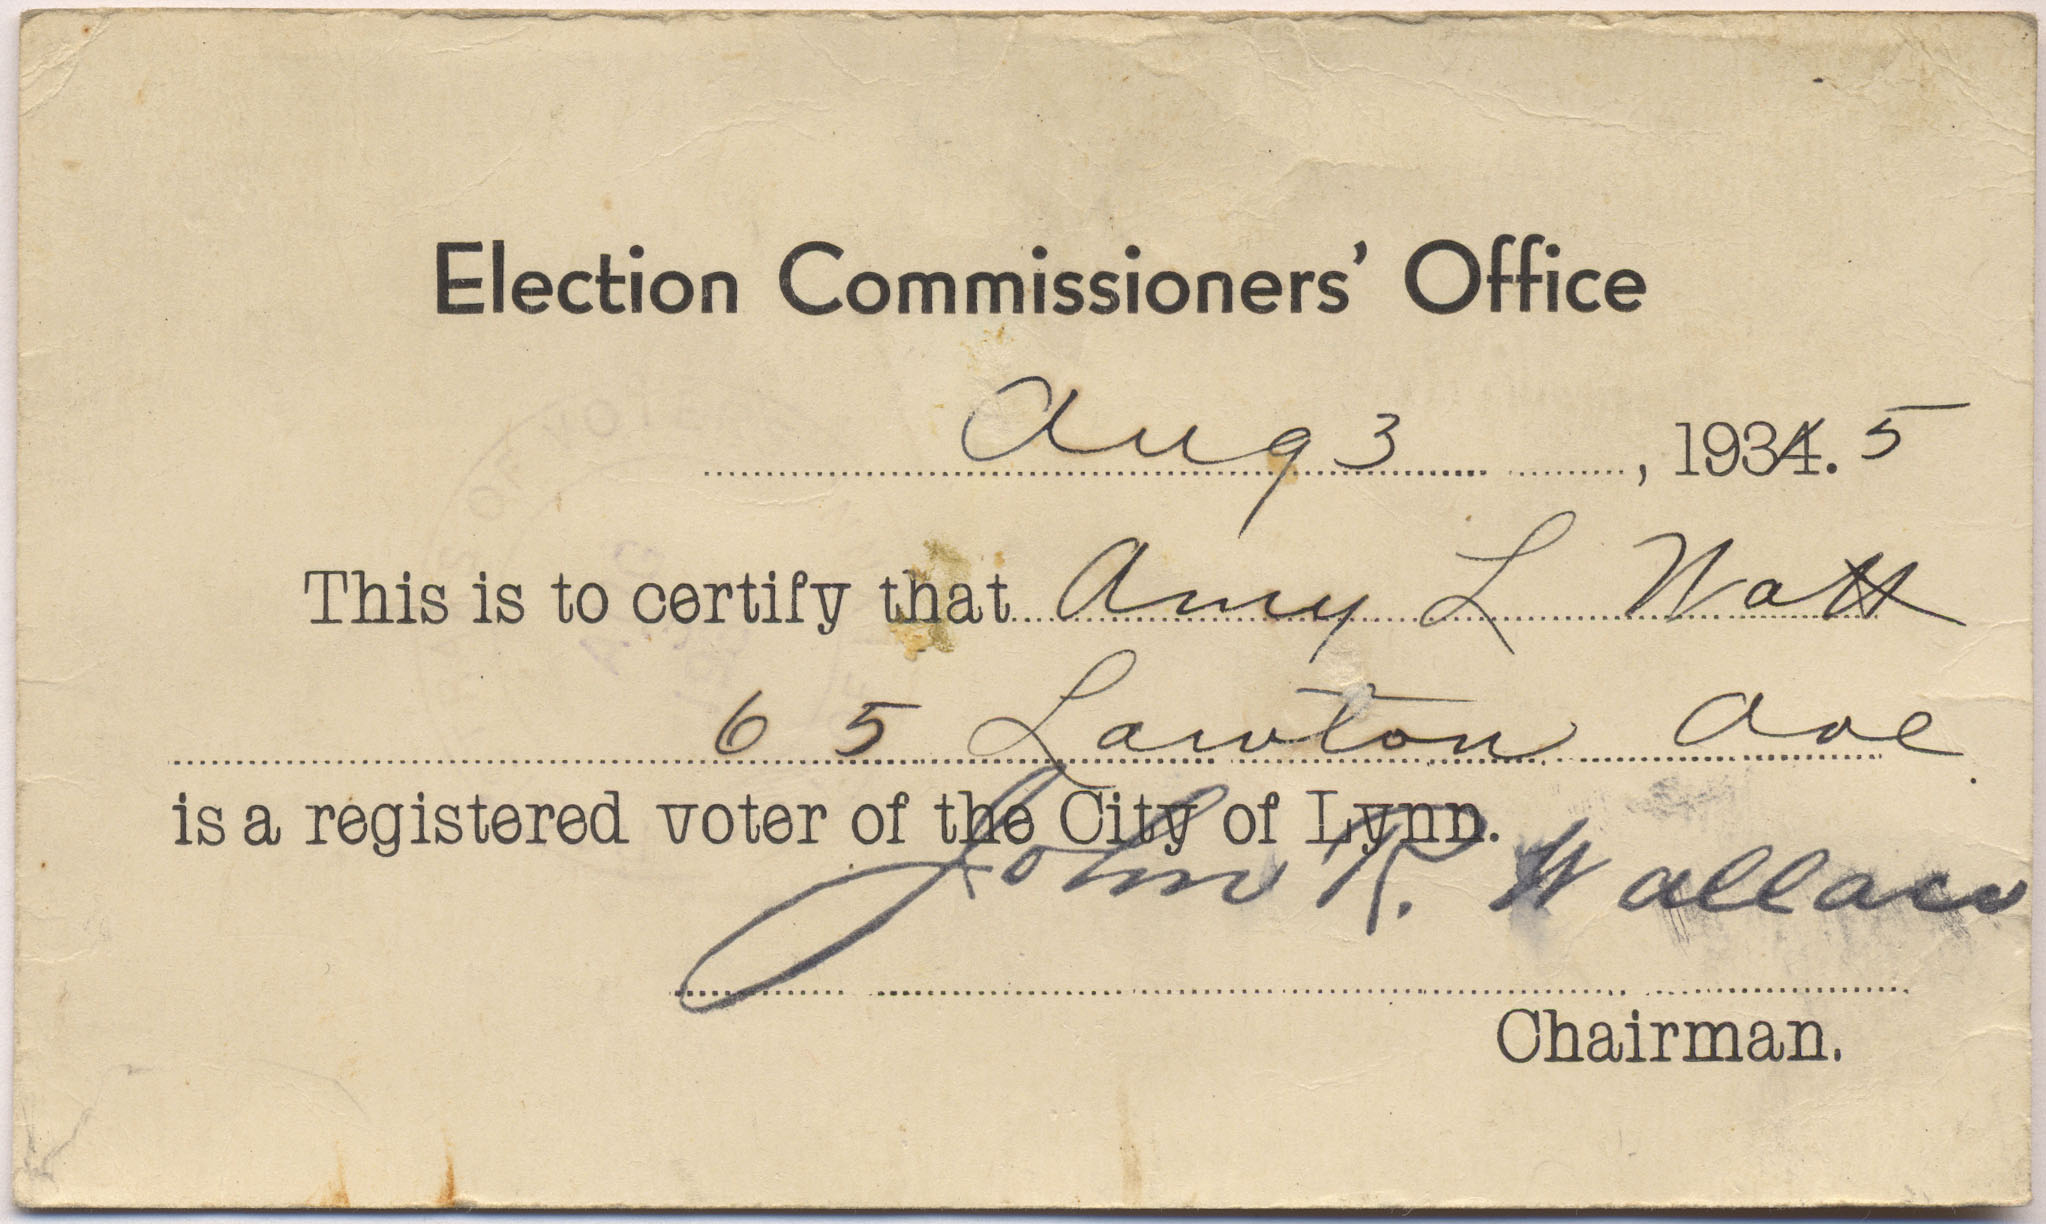 Election Commissioners' Office
Aug 3, 1934. 5
This is to certify that Amy L Watt
65 Lawton Ave
is a registered voter of the City of Lynn.
John R. Wallace
Chairman.